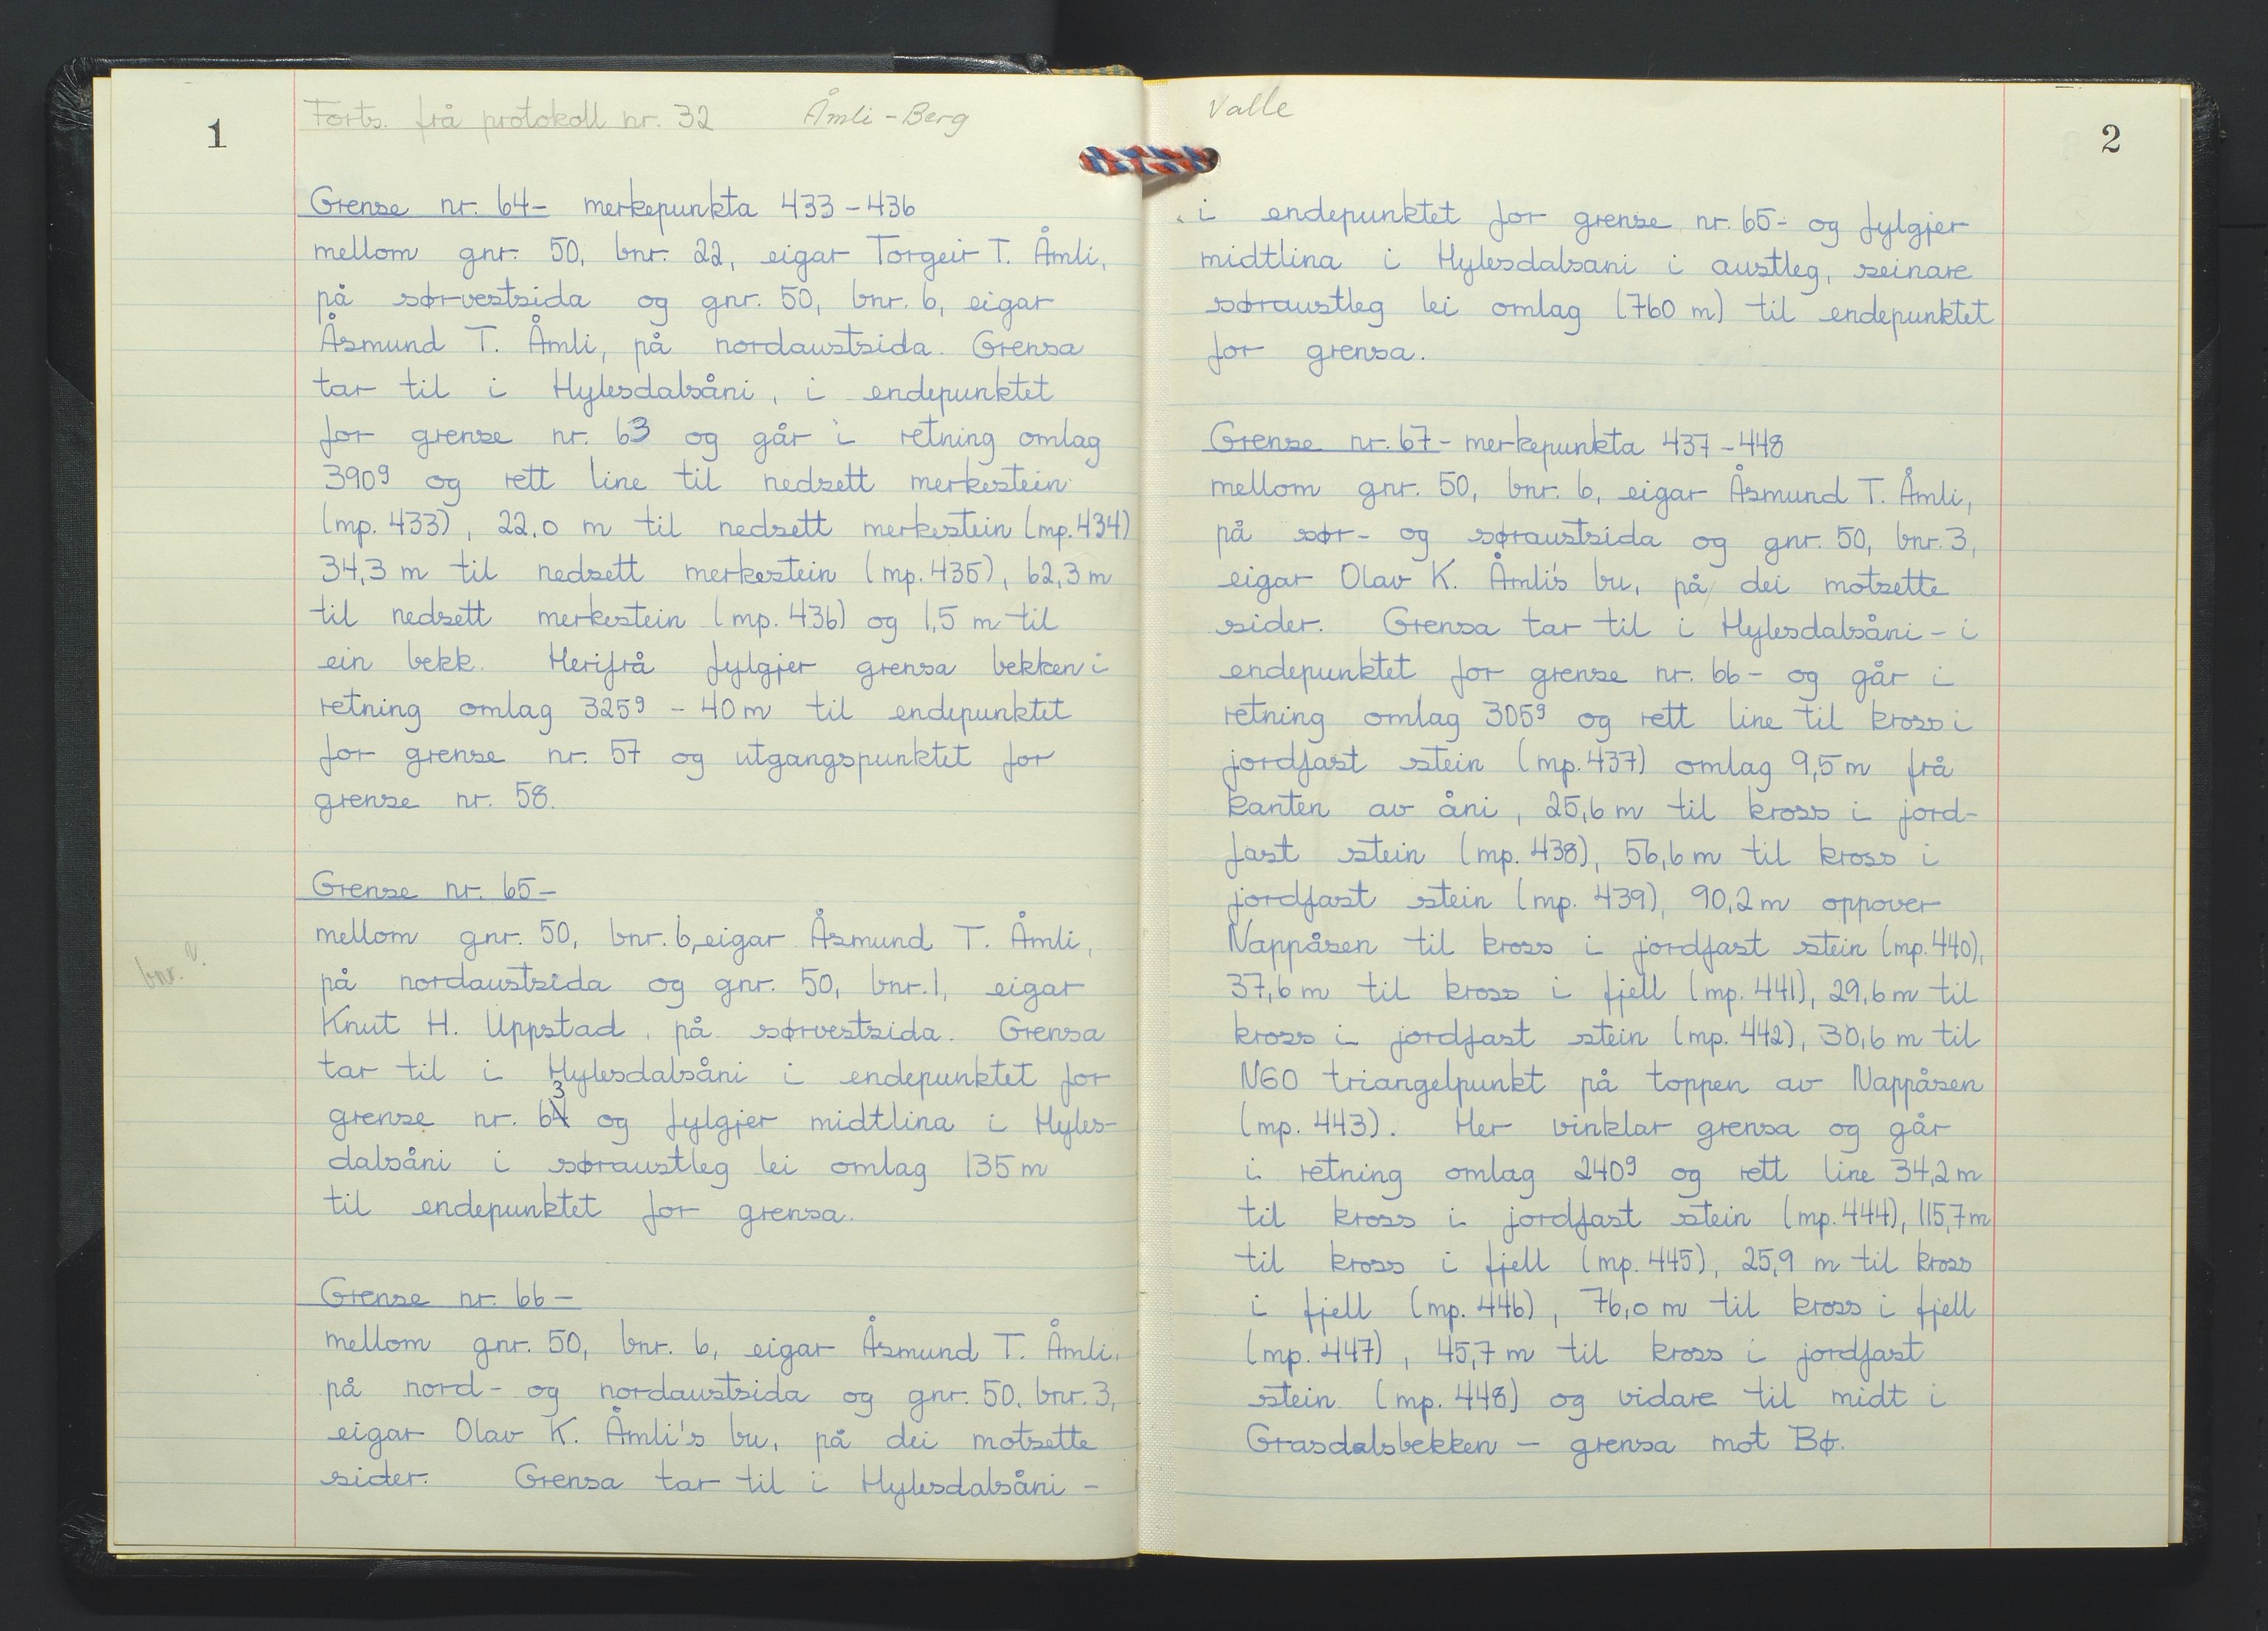 1
Forts. frå protokoll nr. 32 Åmli - Berg
Grense nr. 64 - merkepunkta 433 - 436
mellom gnr. 50, bnr. 22, eigar Torgeir T. Åmli,
på sørvestsida og gnr. 50, bnr. 6, eigar
Åsmund T. Åmli, på nordaustsida. Grensa
tar til i Hylesdalsåni, i endepunktet
for grense nr. 63 og går i retning omlag
390g og rett line til nedsett merkestein
(mp. 433), 22.0 m til nedsett merkestein (mp. 434)
34,3 m til nedsett merkestein (mp. 435), 62,3 m
til nedsett merkestein (mp. 436) og 1,5 m til
ein bekk. Herifrå fylgjer grensa bekken i
retning omlag 325g - 40 m til endepunktet
for grense nr. 57 og utgangspunktet for
grense nr. 58.
Grense nr. 65 -
mellom gnr. 50, bnr. 6, eigar Åsmund T. Åmli,
bnr. 2.
på nordaustsida og gnr. 50, bnr. 1, eigar
Knut H. Uppstad, på sørvestsida. Grensa
tar til i Hylesdalsåni i endepunktet for
3
grense nr. 64 og fylgjer midtlina i Hyles-
dalsåni i søraustleg lei omlag 135 m
til endepunktet for grensa.
Grense nr. 66 -
mellom gnr. 50, bnr. 6, eigar Åsmund T. Åmli,
på nord- og nordaustsida og gnr. 50. bnr. 3,
eigar Olav K. Åmli's bu, på dei motsette
sider. Grensa tar til i Hylesdalsåni -
2
Valle
i endepunktet for grense nr. 65 - og fylgjer
midtlina i Hylesdalsani i austleg, seinare
søraustleg lei omlag (760 m) til endepunktet
for grensa.
Grense nr. 67 - merkepunkta 437 - 448
mellom gnr. 50, bnr. 6, eigar Åsmund T. Åmli,
på sør- og søraustsida og gnr. 50, bnr. 3,
eigar Olav K. Åmli's bu, på dei motsette
sider. Grensa tar til i Hylesdalsåni - i
endepunktet for grense nr. 66 - og går i
retning omlag 305g og rett line til kross i
jordfast stein (mp. 437) omlag 9,5 m frå
kanten av åni, 25,6 m til kross i jord-
fast stein (mp. 438), 56,6 m til kross i
jordfast stein (mp. 439), 90,2 m oppover
Nappåsen til kross i jordfast stein (mp. 440),
37,6 m til kross i fjell (mp. 441), 29,6 m til
kross i jordfast stein (mp. 442), 30,6 m til
NGO triangelpunkt på toppen av Nappåsen
(mp. 443). Her vinklar grensa og går
i retning omlag 240g og rett line 34,2 m
til kross i jordfast stein (mp. 444), 115,7 m
til kross i fjell (mp. 445), 25,9 m til kross
i fjell (mp. 446), 76,0 m til kross i fjell
(mp. 447), 45,7 m til kross i jordfast
stein (mp. 448) og vidare til midt i
Grasdalsbekken - grensa mot Bø.